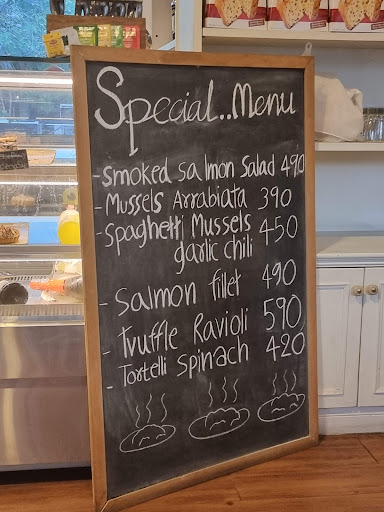 Special..Menu
- Smoked Salmon Salad 490
- Mussels Arrabiata 390
- Spaghetti Mussels garlic chili 450
- Salmon fillet 490
- Truffle Ravioli 590
- Tortelli Spinach 420